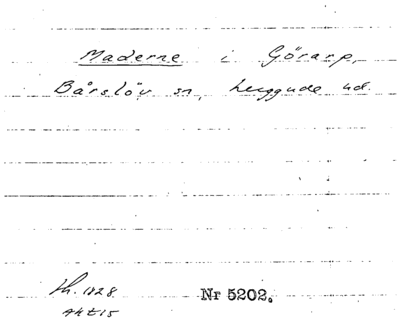 Maderne i Görarp,
Bårslöv sn, Luggude hd.
Sk. 1828 Nr 5202.
Akt 15